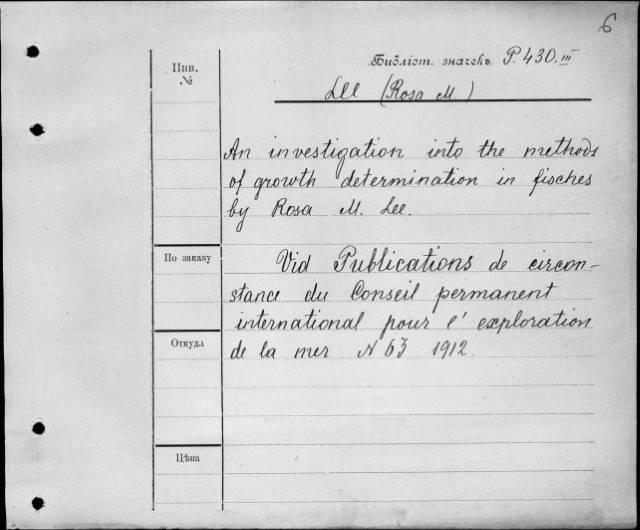 6
Библіот. значекъ P. 430. III
Инв.
№
Lee (Rosa M.)
An investigation into the methods
of growth determination in fisches
by Rosa M. Lee.
По заказу
Vid Publications de circon-
stance du Conseil permanent
international pour l' exploration
Откуда
de la mer N 63 1912.
Цѣна